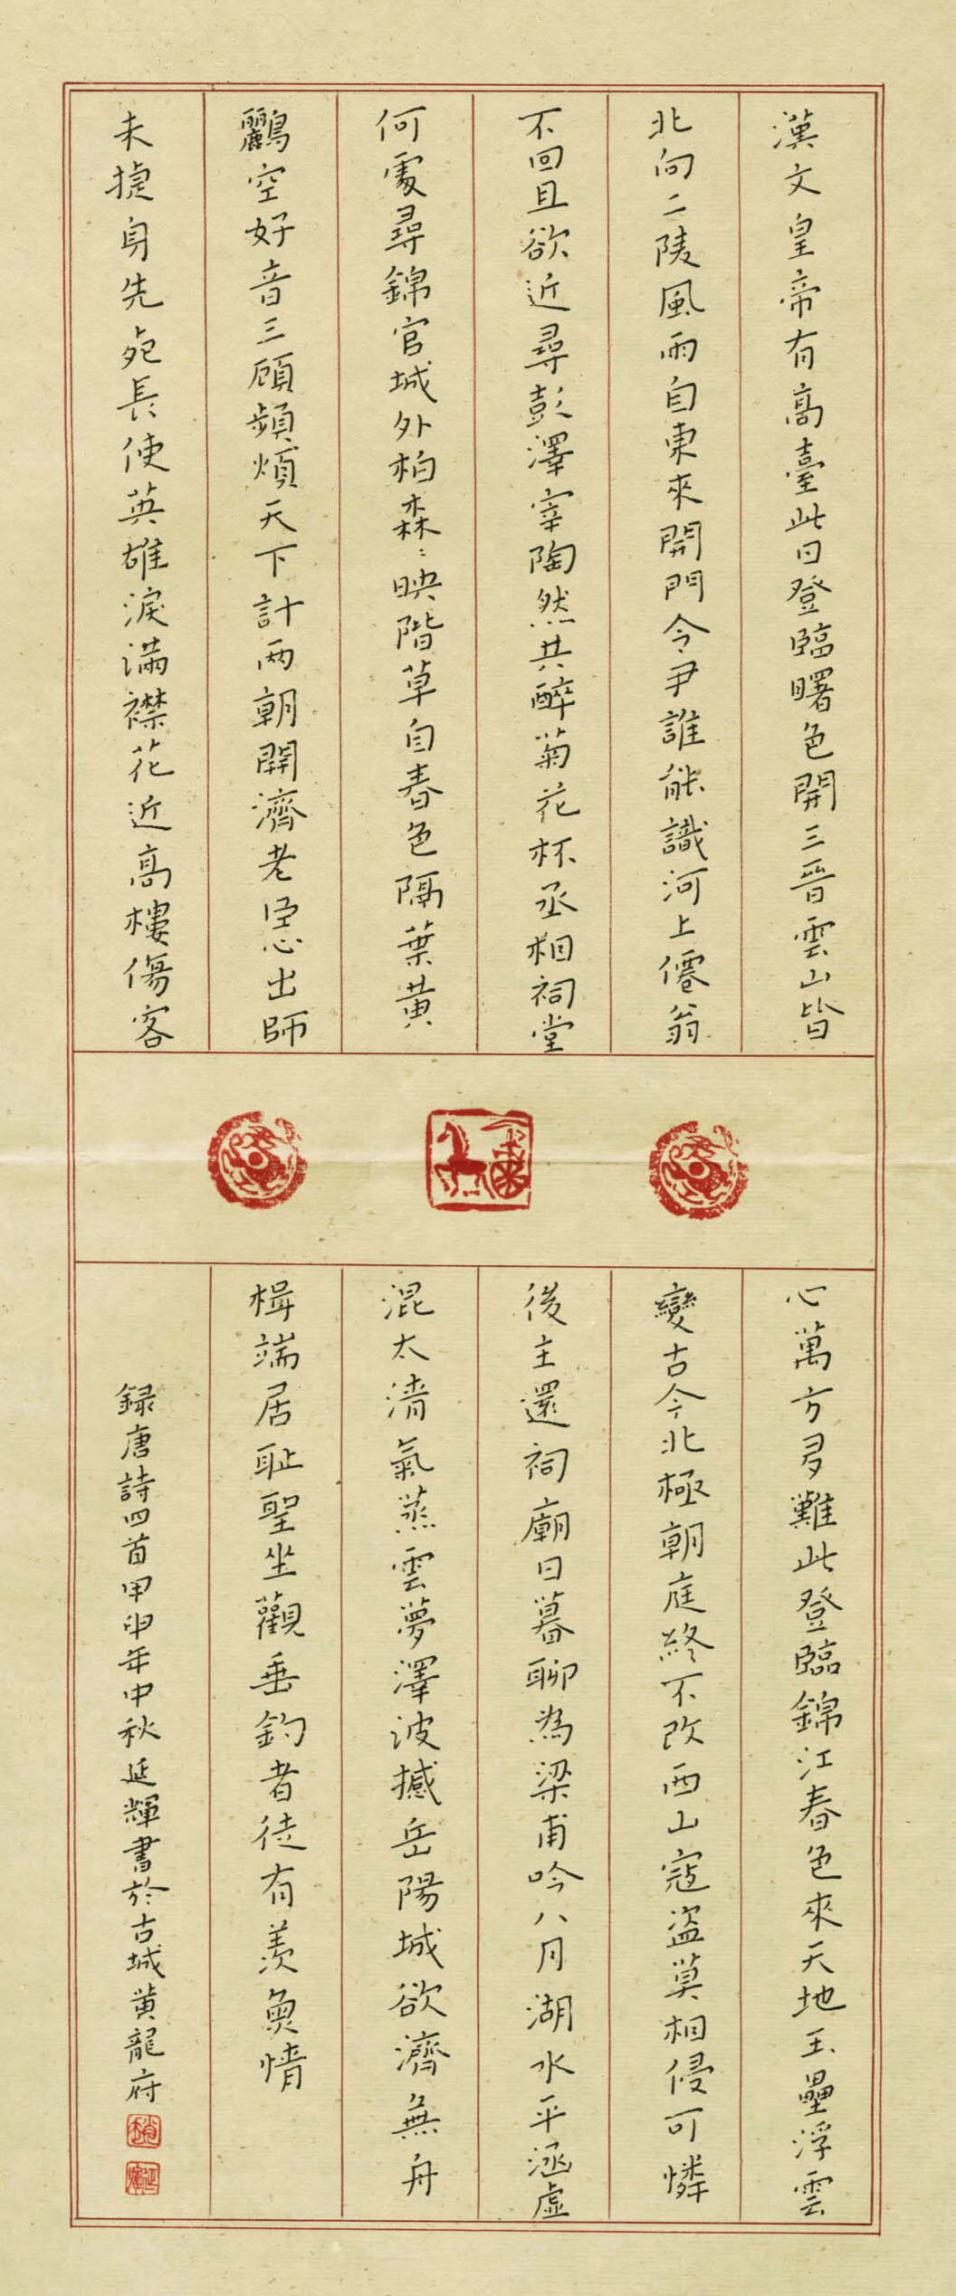 漢文皇帝有高臺此日登臨曙色開三晉雲山皆
北向二陵風雨自東來開門令尹誰能識河上僊翁
不回且欲近尋彭澤宰陶然共醉菊花杯丞相祠堂
何處尋錦官城外柏森〻映階草自春色隔葉黃
鸝空好音三顧頻煩天下計兩朝開濟老臣心出師
未捷身先死長使英雄淚滿襟花近高樓傷客
心萬方多難此登臨錦江春色來天地玉壘浮雲
變古今北極朝庭終不改西山寇盜莫相侵可憐
後主還祠廟日暮聊為梁甫吟八月湖水平涵虛
混太清氣蒸雲夢澤波撼岳陽城欲濟無舟
楫端居恥聖坐觀垂釣者徒有羨魚情
録唐詩四首甲申年中秋延輝書於古城黃龍府